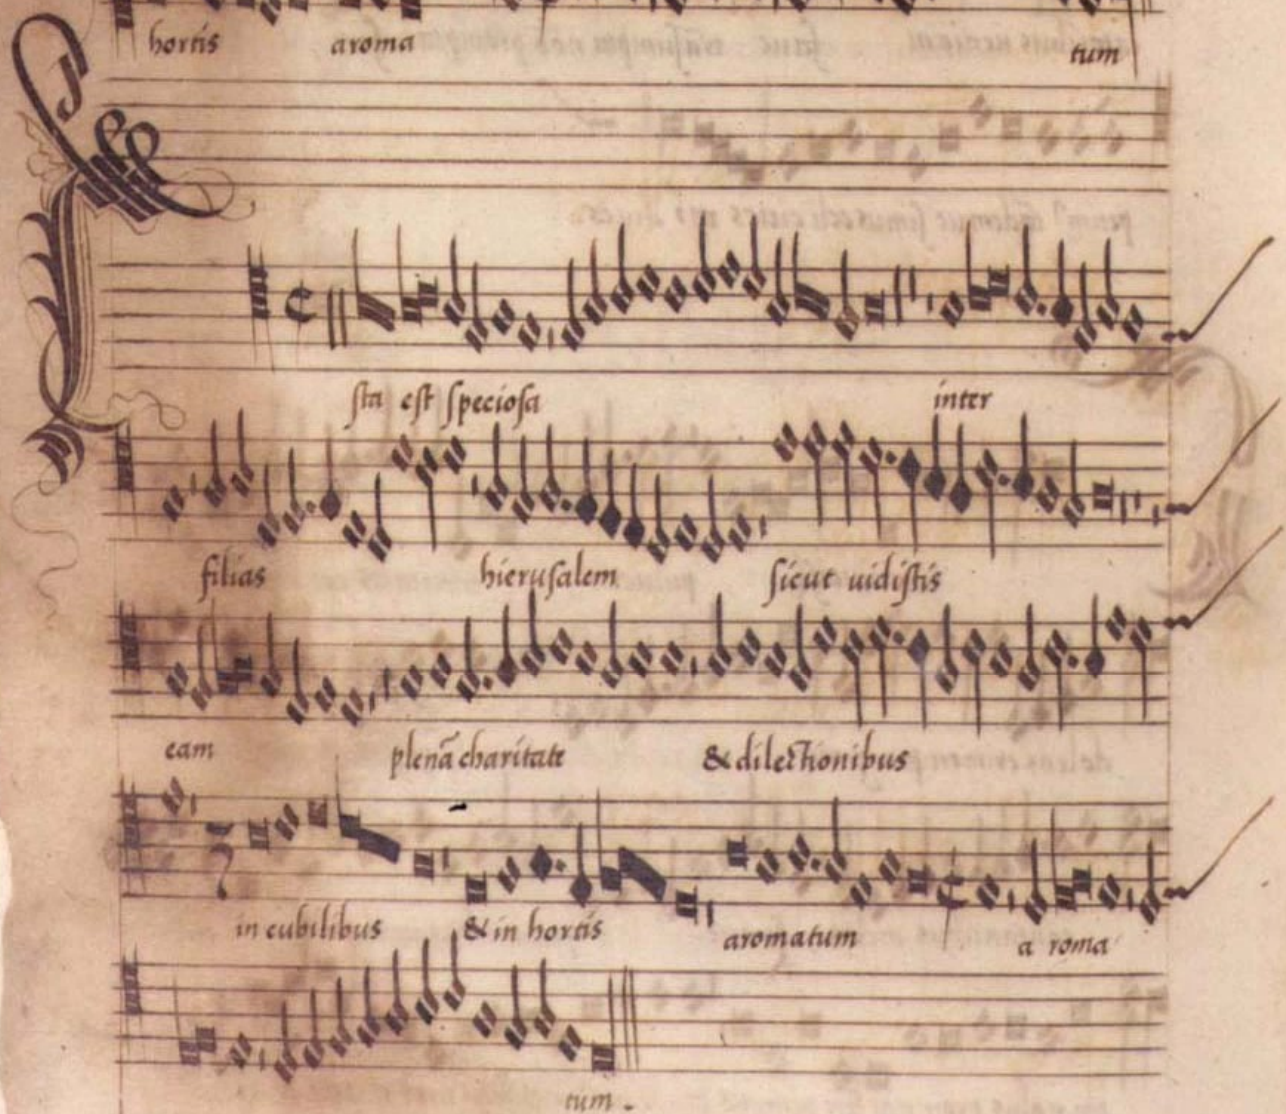 hortis aroma tum
Ista est speciosa inter
filias hierusalem sicut uidistis
eam plenā charitate & dilectionibus
in cubilibus & in hortis aromatum a roma
tum.